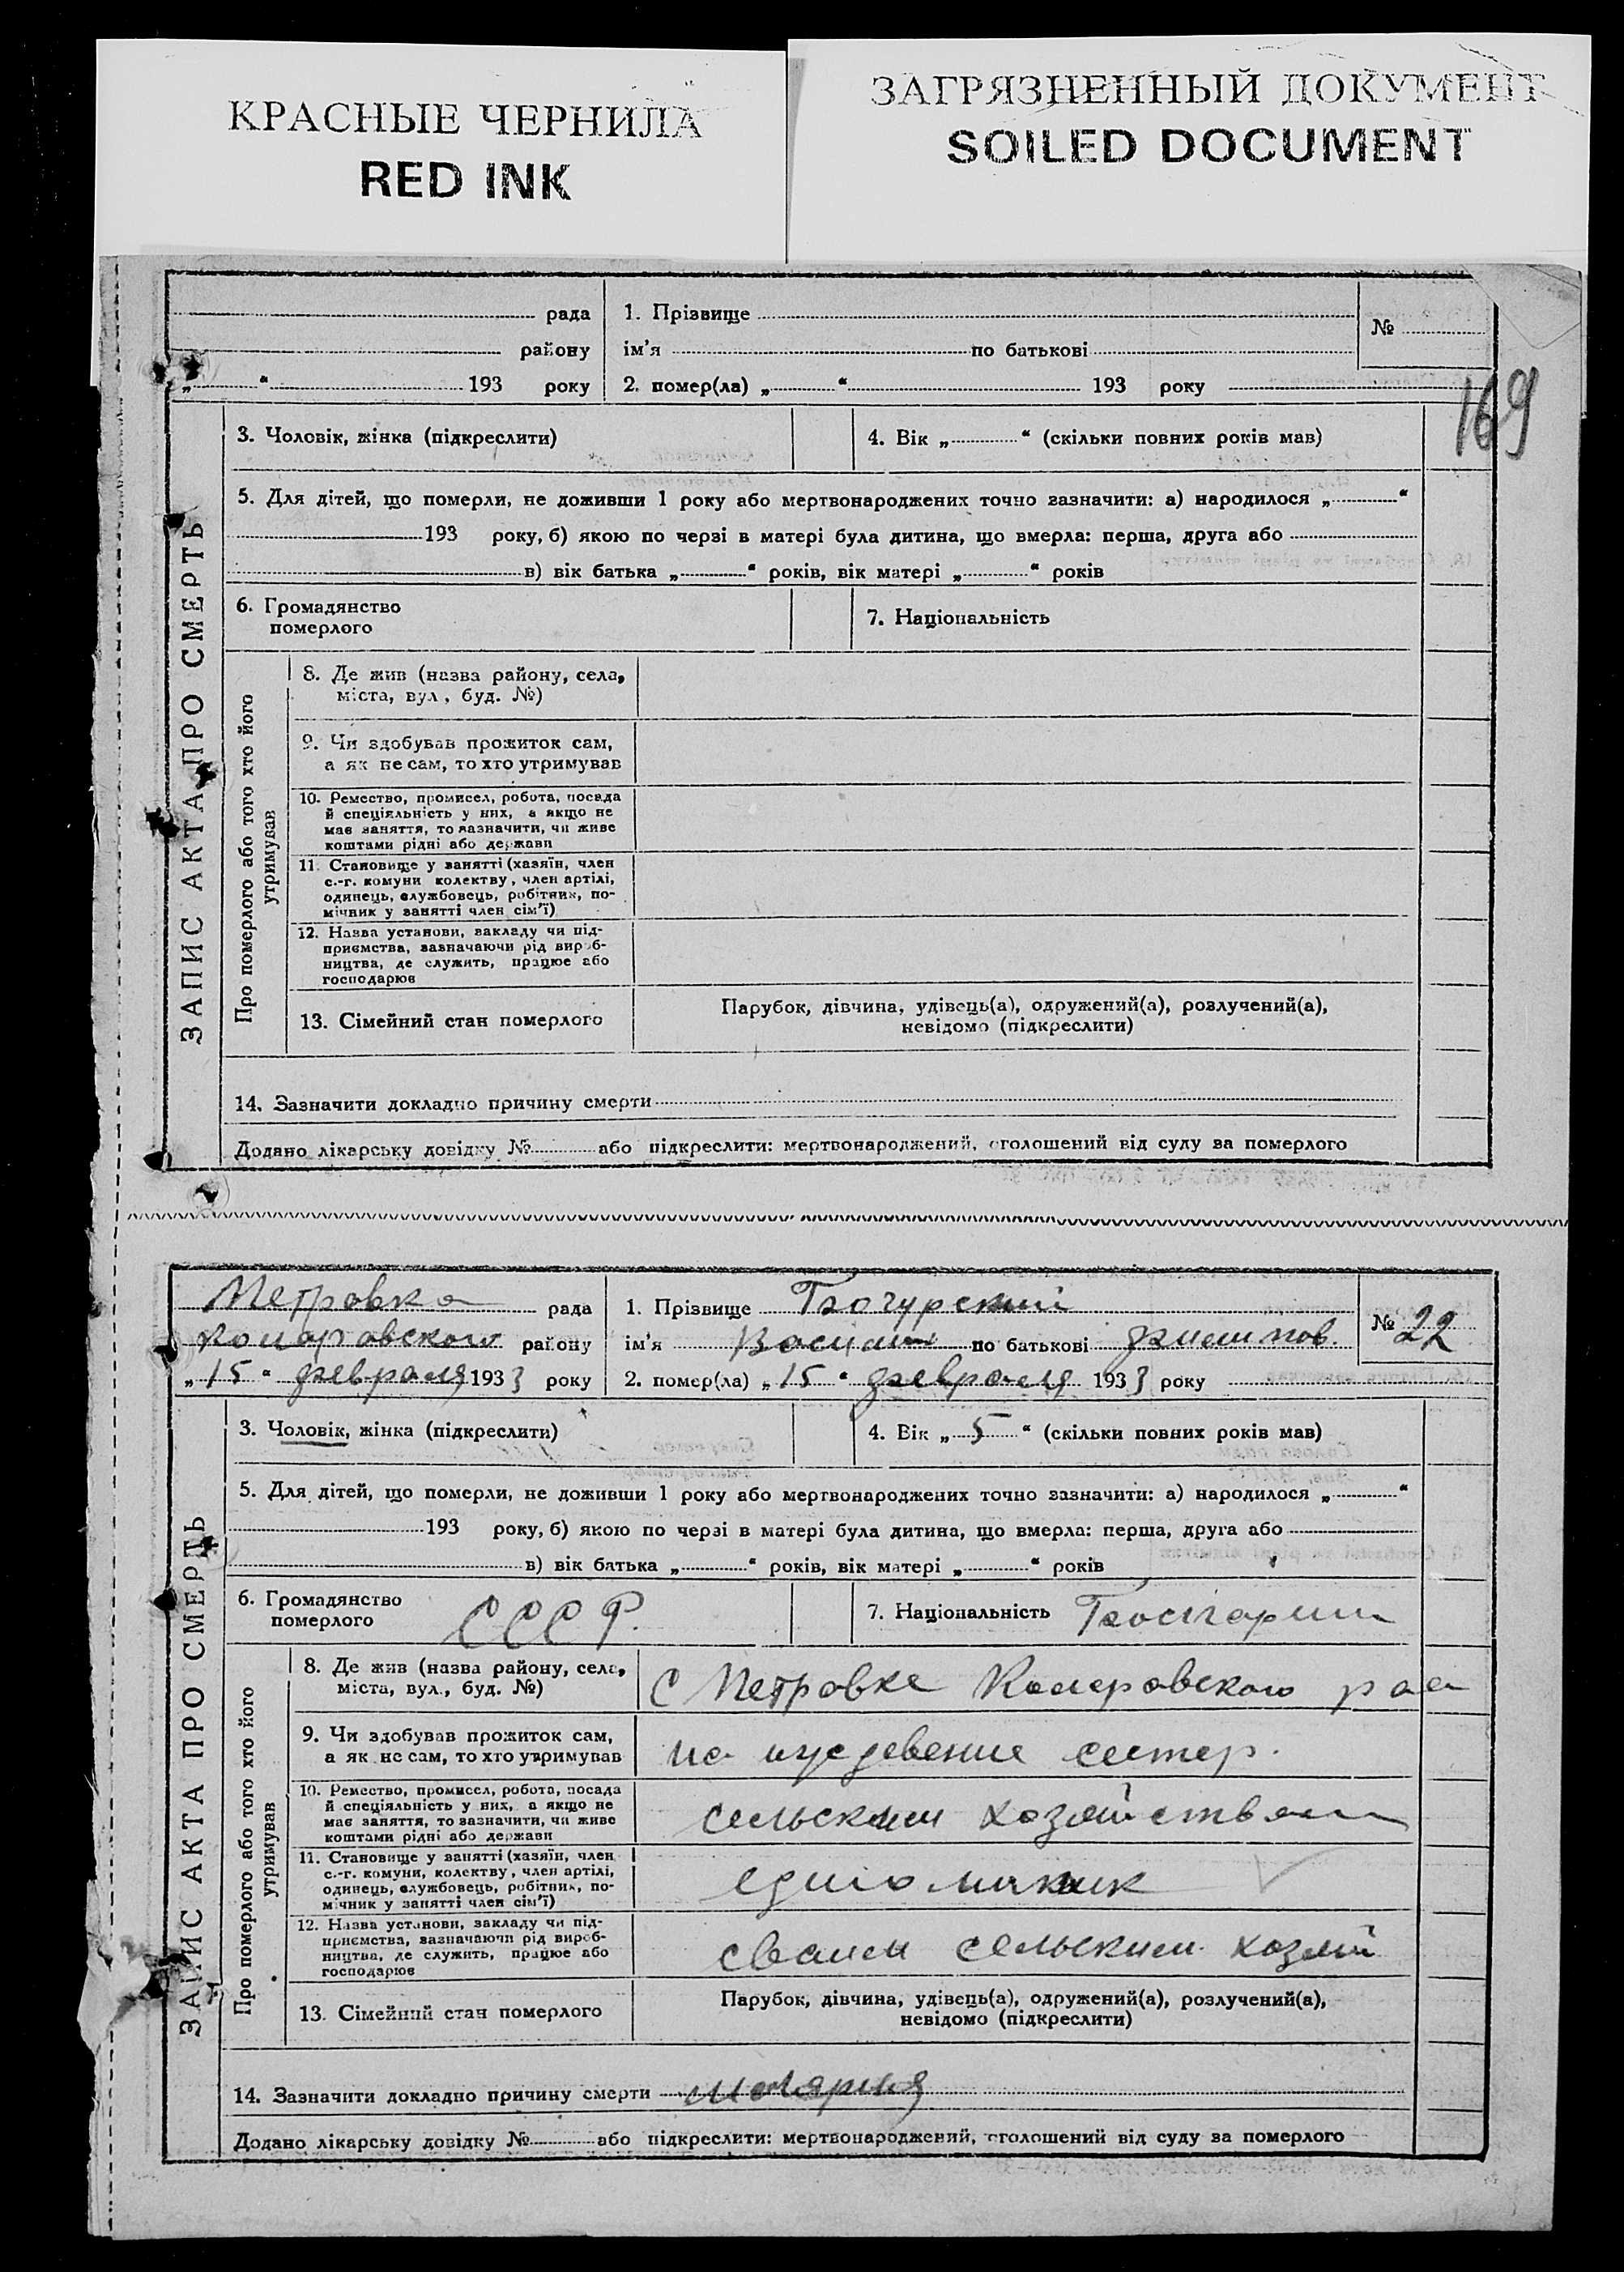 КРАСНЫЕ ЧЕРНИЛА
RED INK
ЗАГРЯЗНЕННЫЙ ДОКУМЕНТ
SOILED DOCUMENT
169
ЗАПИС АКТА ПРО СМЕРТЬ
рада
району
„ “ 193 року
1. Прізвище
ім’я по батькові
2. помер(ла) „ “ 193 року
№
3. Чоловік, жінка (підкреслити)
4. Вік „ “ (скільки повних років мав)
5. Для дітей, що померли, не доживши 1 року або мертвонароджених точно зазначити: а) народилося „ “
193 року, б) якою по черзі в матері була дитина, що вмерла: перша, друга або
в) вік батька „ “ років, вік матері „ “ років
6. Громадянство
померлого
7. Національність
Про померлого або того хто його
утримував
8. Де жив (назва району, села,
міста, вул., буд. №)
9. Чи здобував прожиток сам,
а як не сам, то хто утримував
10. Ремество, промисел, робота, посада
й спеціяльність у них, а якщо не
має заняття, то зазначити, чи живе
коштами рідні або держави
11. Становище у занятті (хазяїн, член
с.-г. комуни колектву, член артілі,
одинець, службовець, робітник, по-
мічник у занятті член сім’ї)
12. Назва установи, закладу чи під-
приємства, зазначаючи рід вироб-
ництва, де служить, працює або
господарює
13. Сімейний стан померлого
Парубок, дівчина, удівець(а), одружений(а), розлучений(а),
невідомо (підкреслити)
14. Зазначити докладно причину смерти
Додано лікарську довідку № або підкреслити: мертвонароджений, оголошений від суду за померлого
ЗАПИС АКТА ПРО СМЕРТЬ
Петровка рада
району
„ 15 “ февраля 1933 року
1. Прізвище
ім’я по батькові
2. помер(ла) „ 15 “ февраля 1933 року
№ 22
3. Чоловік, жінка (підкреслити)
4. Вік „ 5 “ (скільки повних років мав)
5. Для дітей, що померли, не доживши 1 року або мертвонароджених точно зазначити: а) народилося „ “
193 року, б) якою по черзі в матері була дитина, що вмерла: перша, друга або
в) вік батька „ “ років, вік матері „ “ років
6. Громадянство
померлого СССР.
7. Національність
Про померлого або того хто його
утримував
8. Де жив (назва району, села,
міста, вул., буд. №)
с Петровке Комаровского
9. Чи здобував прожиток сам,
а як не сам, то хто утримував
10. Ремество, промисел, робота, посада
й спеціяльність у них, а якщо не
має заняття, то зазначити, чи живе
коштами рідні або держави
сельским хозяйством
11. Становище у занятті (хазяїн, член
с.-г. комуни, колектву, член артілі,
одинець, службовець, робітник, по-
мічник у занятті член сім’ї)
12. Назва установи, закладу чи під-
приємства, зазначаючи рід вироб-
ництва, де служить, працює або
господарює
своим сельским хозяй
13. Сімейний стан померлого
Парубок, дівчина, удівець(а), одружений(а), розлучений(а),
невідомо (підкреслити)
14. Зазначити докладно причину смерти малярия
Додано лікарську довідку № або підкреслити: мертвонароджений, оголошений від суду за померлого